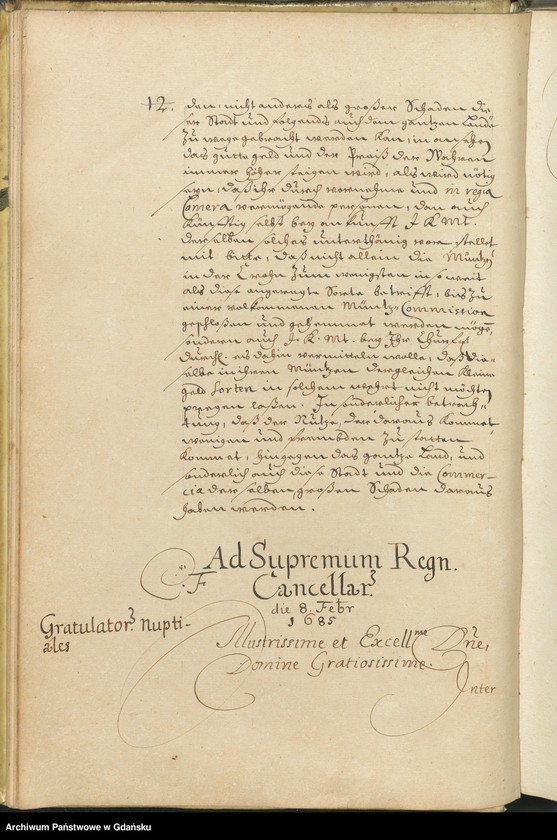 12. den, nicht anders als großer Schaden die-
ser Stadt und folgends auch dem gantzen Lande
zu wege gebracht werden kan, in ansehen
das gutte geld und der Preiß der Wahren
immer höher steigen wird, als wird nötig
seyn, daß Ihr durch vornehme und in regia
Camera vermögende personen, den auch
künfftig selbst bey ankunfft J. K. Mt.
derselben solches unterthänig vorstellet
mit bitte, daß nicht allein die Müntze
in der Crohn zum wenigsten in so weit
als diese angeregte Sorte betrifft, bis zu
einer volkommenen Müntz-Commission
geschloßen und gehemmet werden möge,
sondern auch J. K. Mt. bey Ihr Churfl.
Durchl. es dahin vermitteln wolle, daß die-
selbe in ihren Müntzen dergleichen kleine
geld Sorten in solchem wehrt nicht möchte
prägen laßen. In sonderlicher betrach-
tung, daß der Nutze, der daraus kommet
wenigen und frembden zu statten
kommet, hingegen das gantze Land, und
sonderlich auch diese Stadt und die Commer-
cia derselben großen Schaden daraus
haben werden.
Ad Supremum Regn.
F Cancellar.
die 8. Febr
1685
Gratulator. nupti-
ales
Illustrissime et Excellme Dne,
Domine Gratiosissime.
Inter
Archiwum Państwowe w Gdańsku